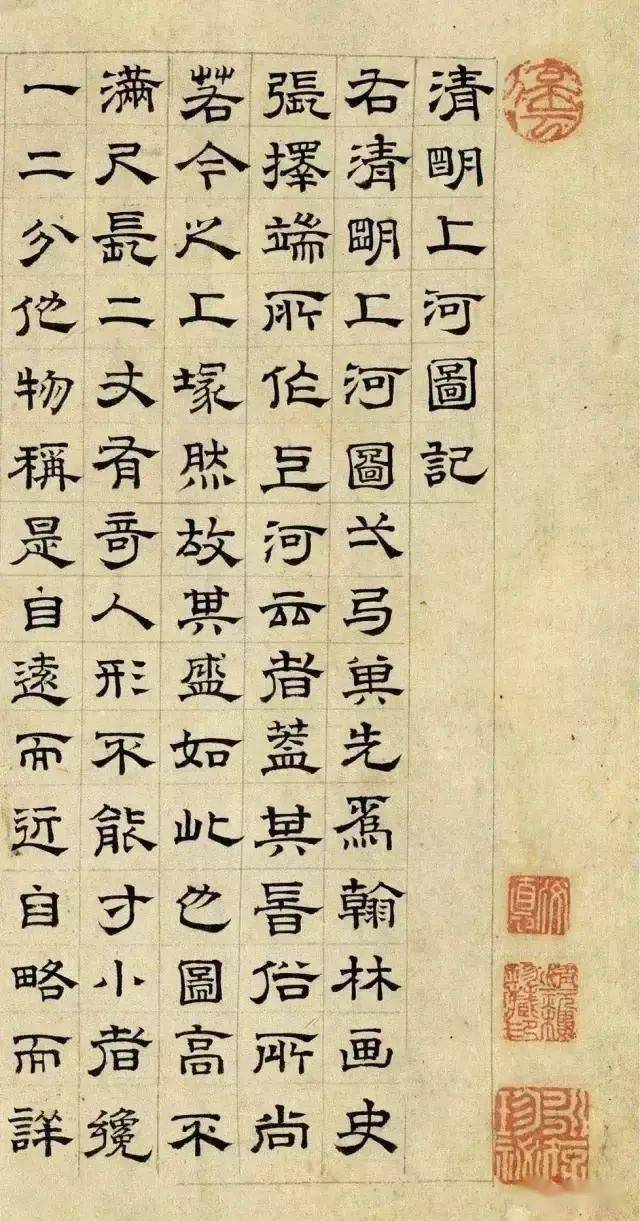 清朙上河圖記
右清朙上河圖弌弓先爲翰林画史
張擇端所作河云者蓋其旹俗所尚
若今之上塚然故其盛如此也圖高不
滿尺長二丈有奇人形不能寸小者纔
一二分他物稱是自遠而近自略而詳